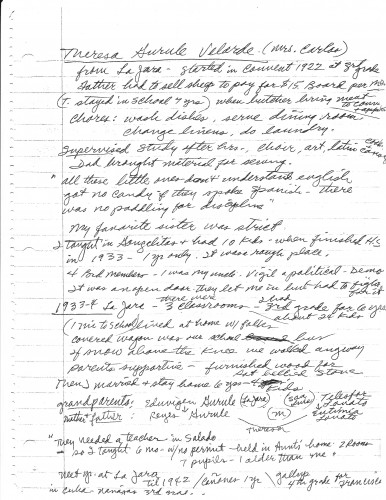 Theresa Gurule Velarde (Mrs. Carlos)
from La Jara - started in convent 1922 at 3rd grade
Father had to sell sheep to pay for $15 Board per mo
(T. stayed in school 7 yrs) when butcher bring meat
to conv
+ apples
chores: wash dishes, serve dining room
change linens, do laundry.
Supervised Study after hrs., choir, art, latin
Dad brought material for sewing.
"all these little ones don't understand english
got no candy if they spoke Spanish - there
was no paddling for discipline"
My favorite sister was strict.
I taught in + had 10 kids - when finished HS
in 1933 - 1 yr only. It was a rough place.
4 Bord members - 1 was my uncle. Vigil + political - Demo
It was an open door. they let me in but had to fight
for it
1933-4 La Jara - there were 3 classrooms - 3rd grade for 6 yrs
about 24 kids
(1 mi to school) lived at home w/ folks
covered wagon was our school bus
if snow above the knee we walked anyway
parents supportive - furnished wood for
Then I married + stay home 10 yrs - kids
grandparents: (La Jara)
mother + father: Reyes Gurule (m)
Theresa
"They needed a teacher in Salado
- so I taught 6 mo - w/ no permit - held in Aunt's home 2 rooms
7 pupils - 1 older than me +
next yr. at La Jara
til 1942 / 1 yr gallup
4th grade for
in Cuba